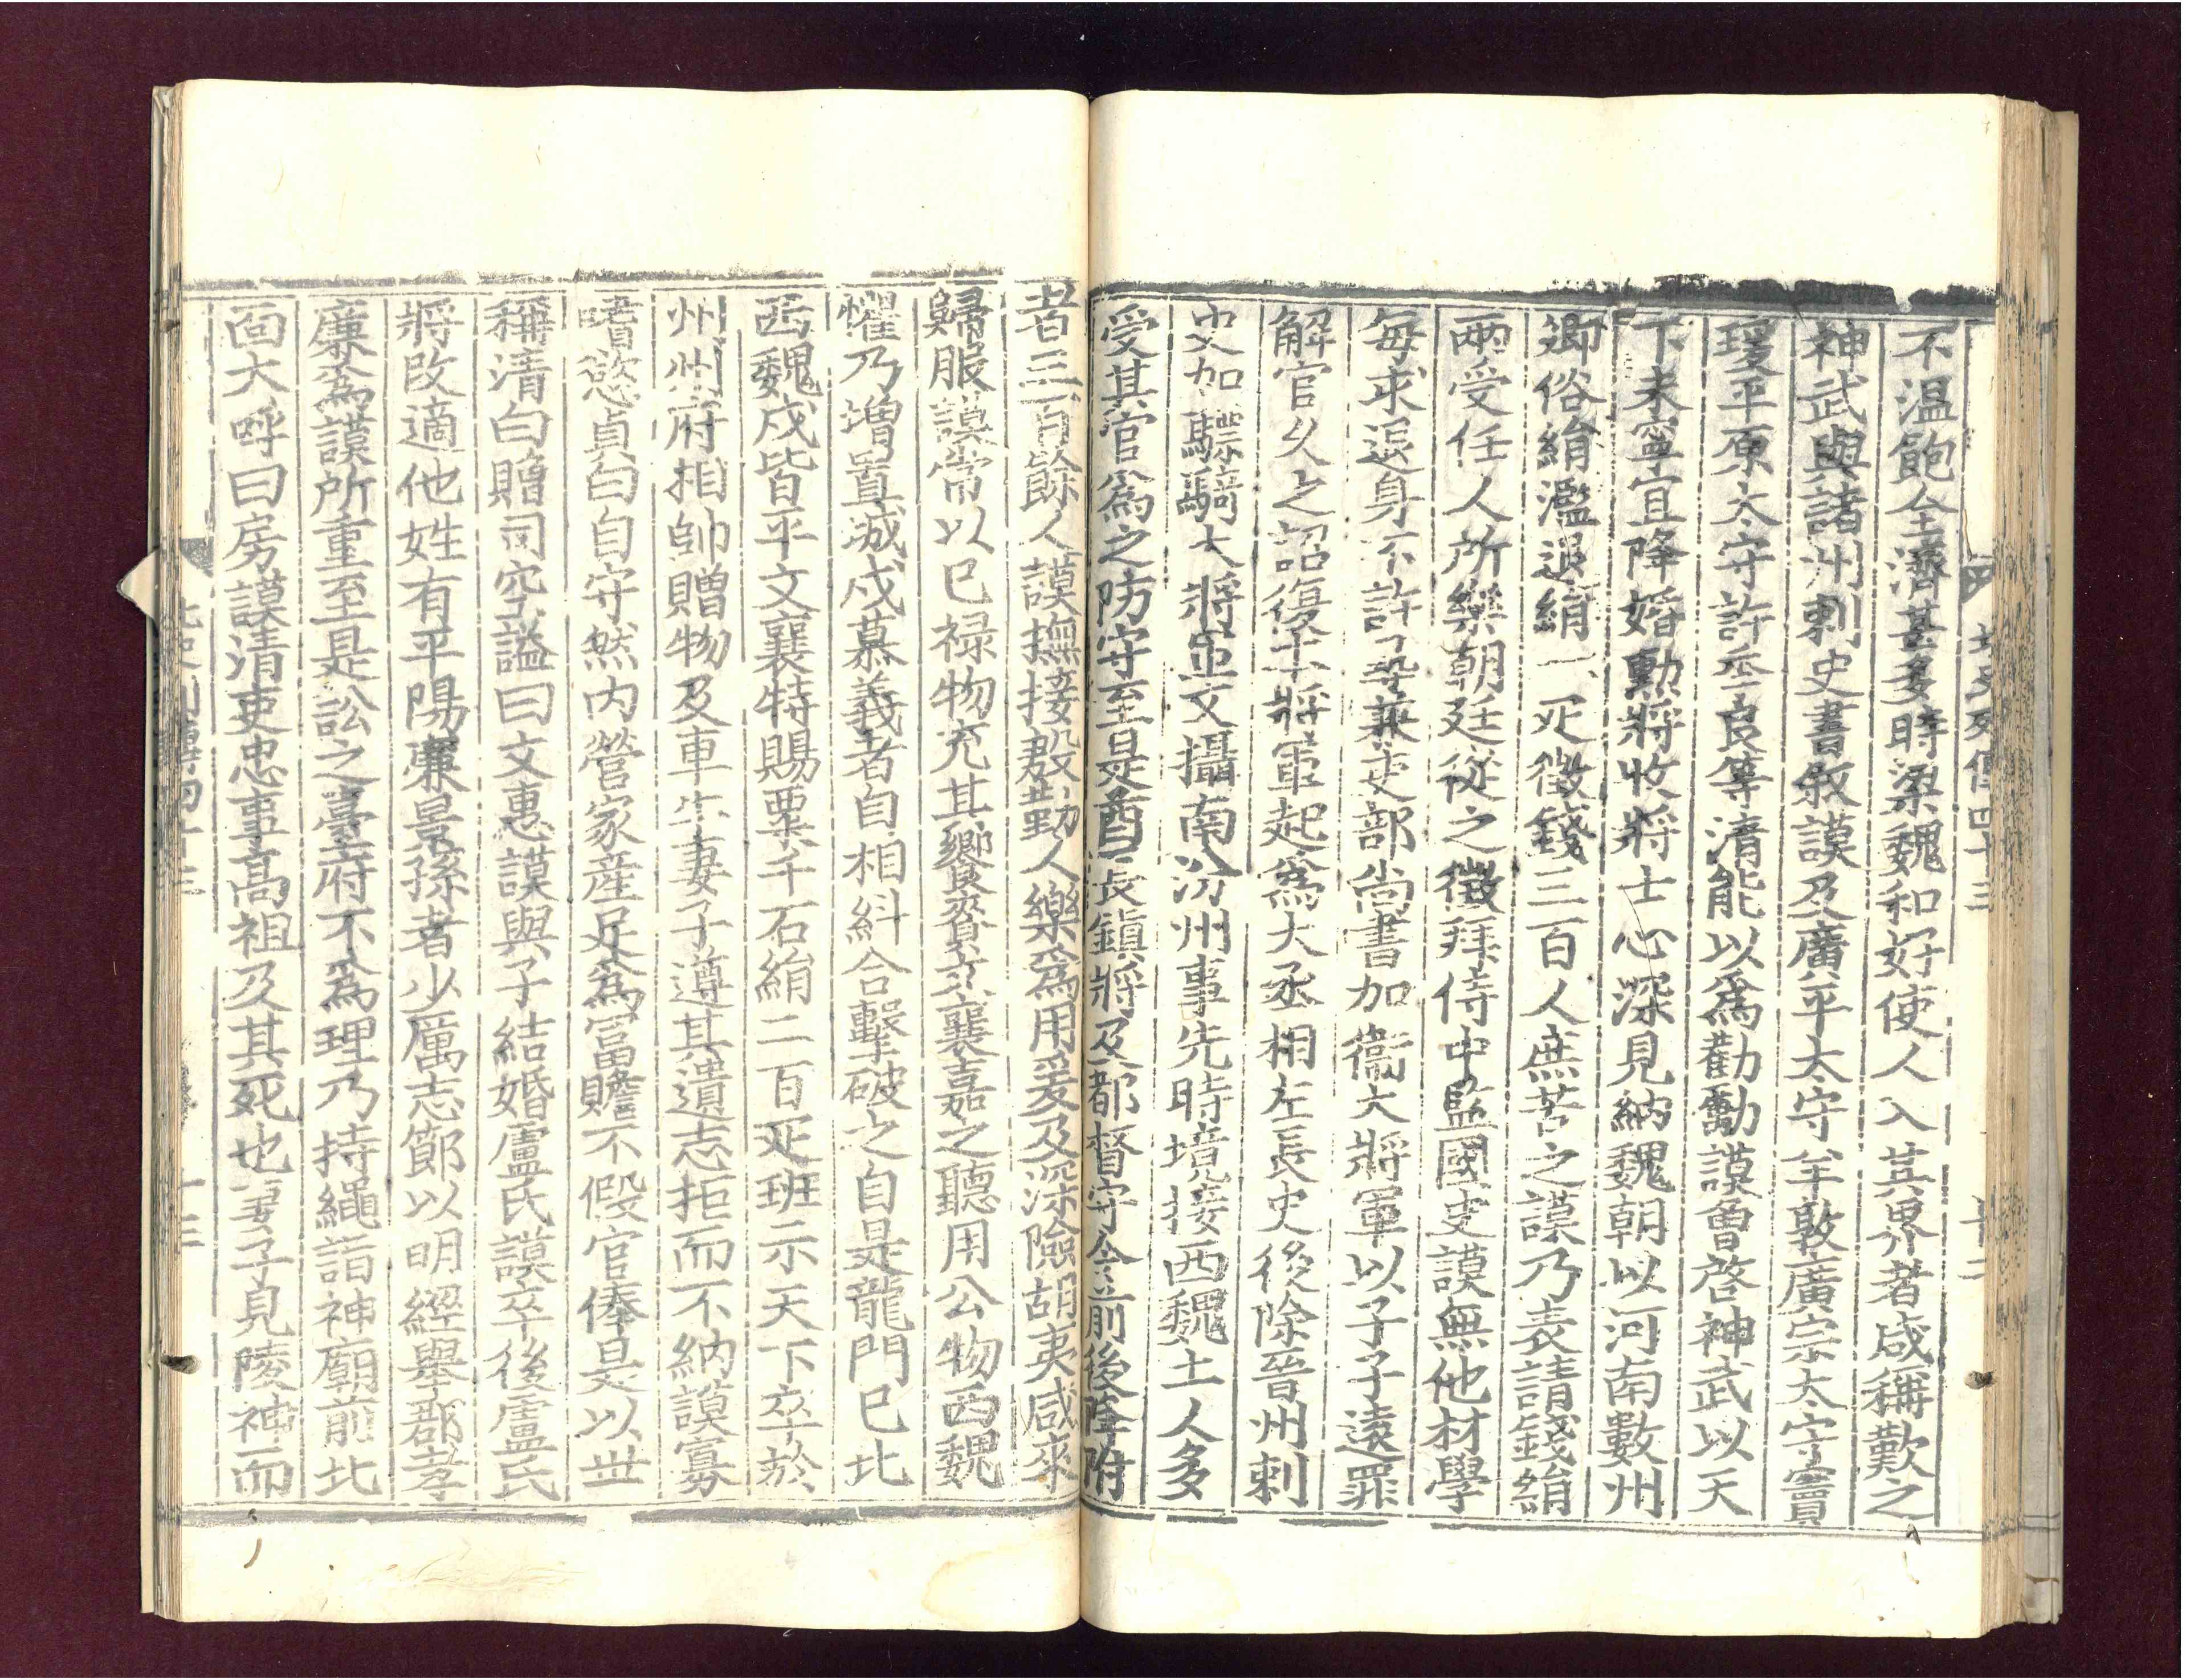 北史列傳四十三
十二
不温飽全濟甚多時梁魏和好使人入其界者咸稱歎之
神武與諸州刺史書叙謨及廣平太守羊敦廣宗太守竇
瑗平原太守許丞良等清能以爲勸勵謨曾啓神武以天
下未寧宜降婚勳將收將士心深見納魏朝以河南數州
鄉俗絹濫退絹一疋徵錢三百人庶苦之謨乃表請錢絹
兩受任人所樂朝廷從之徵拜侍中監國史謨無他材學
每求退身不許尋兼吏部尚書加衛大將軍以子子遠罪
解官久之詔復本將軍起爲大丞相左長史後除晉州刺
史加驃騎大將並又攝南汾州事先時境接西魏土人多
受其官爲之防守至是酋長鎮將及都督守令前後降附
者三百餘人謨撫接殷勤人樂爲用爰及深險胡夷咸來
歸服謨常以已禄物充其饗賚文襄嘉之聽用公物西魏
懼乃増置城戍慕義者自相糾合擊破之自是龍門已北
西魏戍皆平文襄特賜粟千石絹二百疋班示天下卒於
州州府相帥贈物及車牛妻子遵其遺志拒而不納謨寡
嗜慾貞白自守然内營家産足爲冨贍不假官俸是以世
稱清白贈司空謚曰文惠謨與子結婚盧氏謨卒後盧氏
將改適他姓有平陽亷景孫者少厲志節以明經舉郡孝
廉爲謨所重至是訟之臺府不爲理乃持繩詣神廟前北
面大呼曰房謨清吏忠事高祖及其死也妻子見陵神而
北史列傳四十三
十三